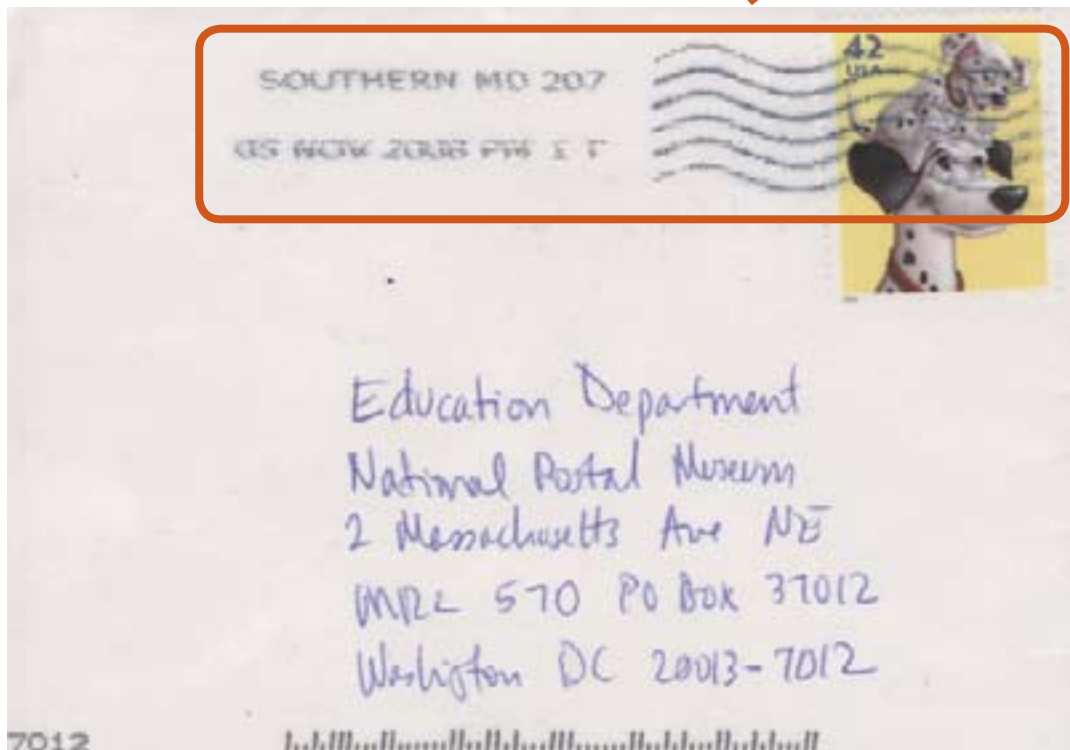 SOUTHERN MD 207
42
USA
05 NOV 2008 PM 1 T
Education Department
National Postal Museum
2 Massachusetts Ave NE
MRC 570 PO Box 37012
Washigton DC 20013-7012
7012